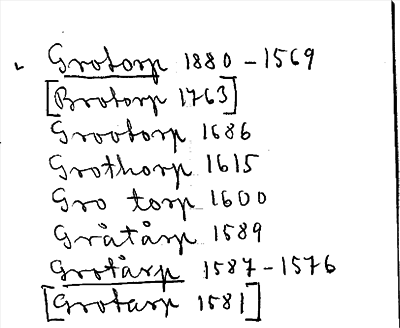 Grotorp 1880-1569
[Brotorp 1763]
Grootorp 1686
Grothorp 1615
Gro torp 1600
Gråtårp 1589
Grotårp 1587-1576
[Grotarp 1581]